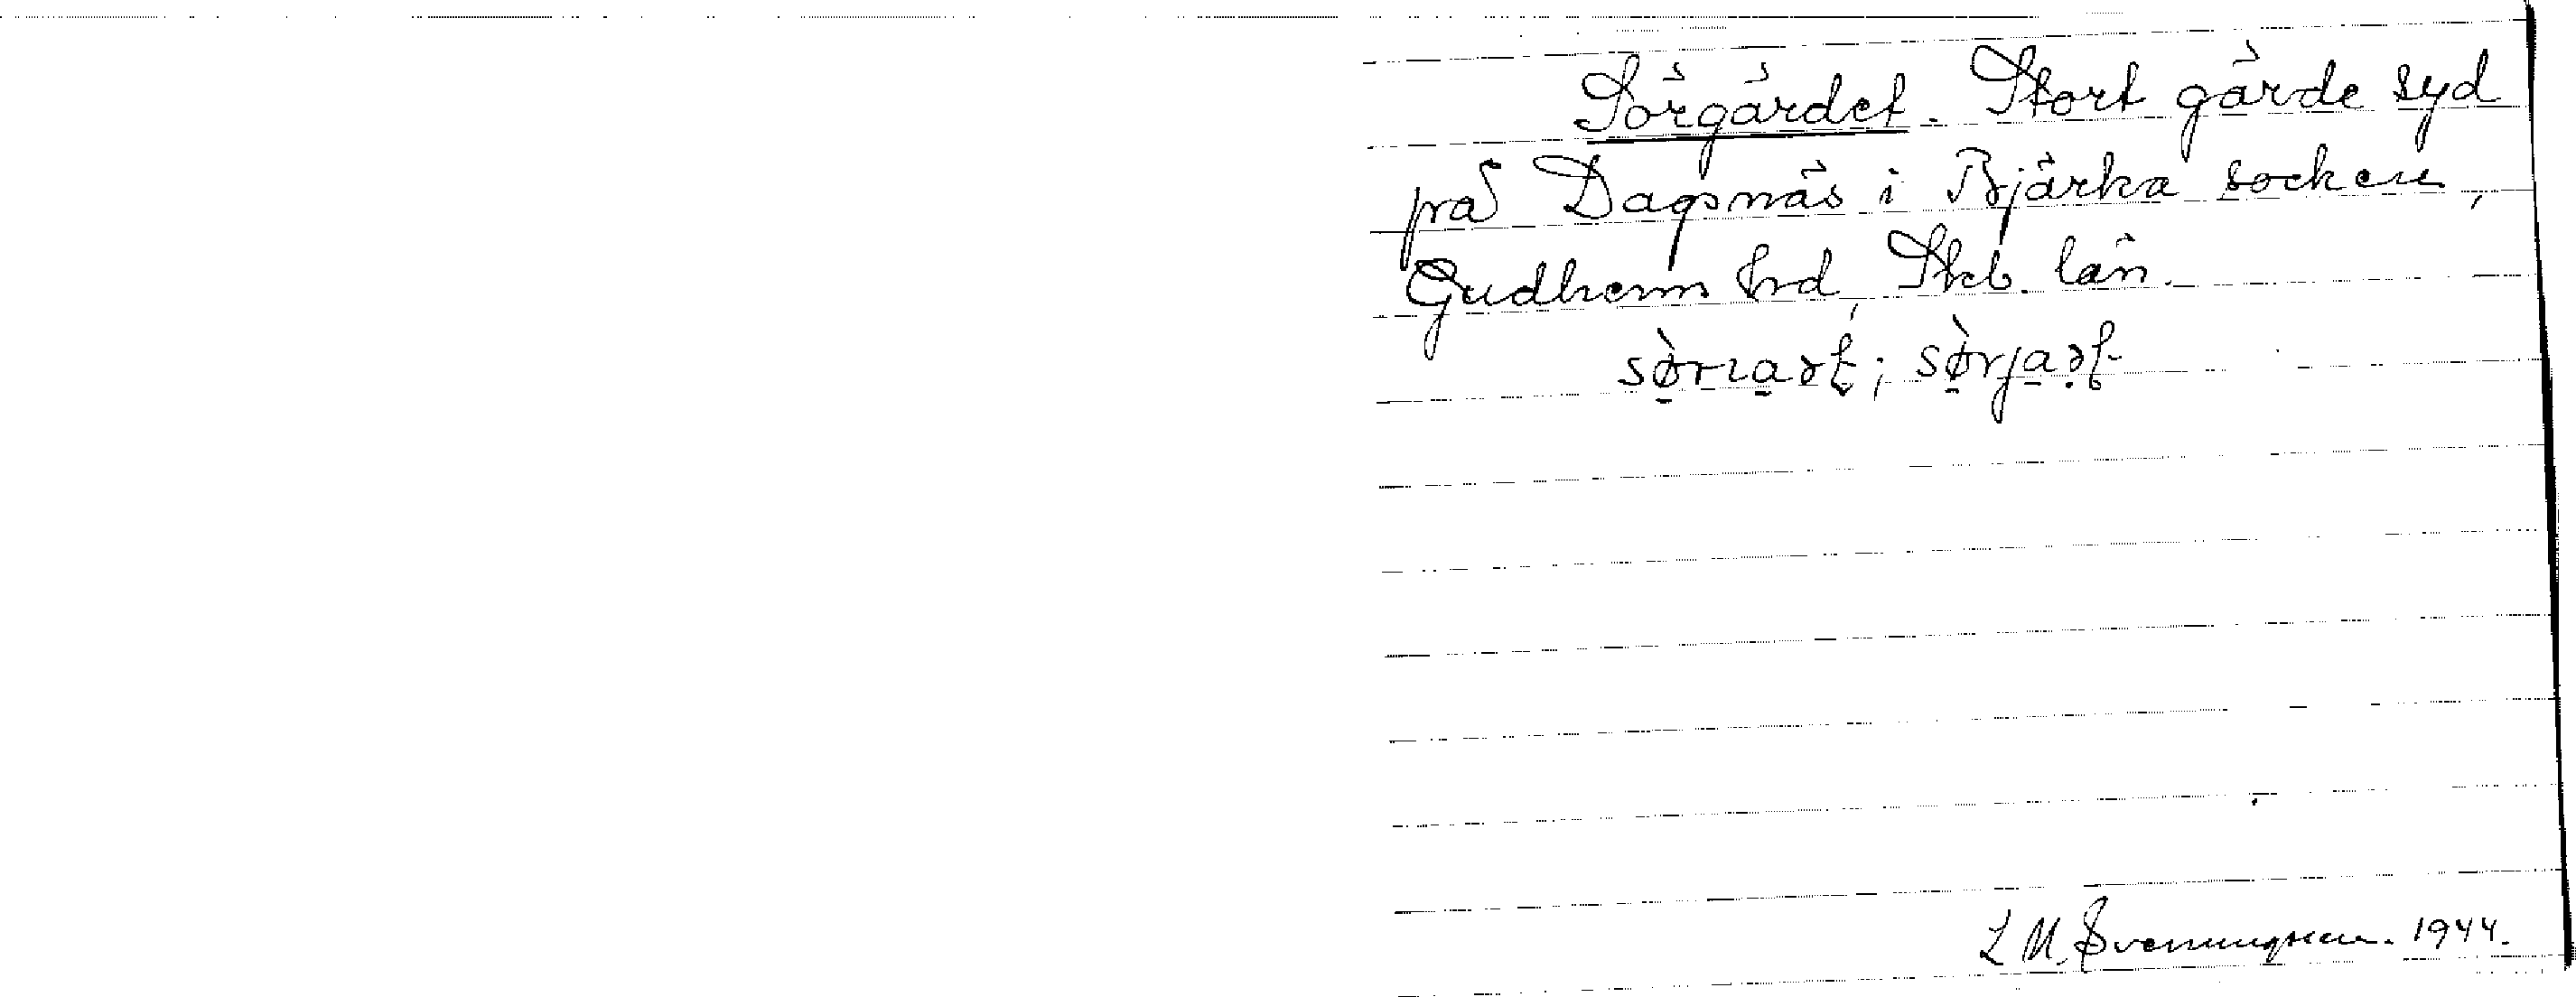 Sörgärdet. Stort gärde syd
på Dagsnäs i Bjärka socken,
Gudhems hrd, Skb. län.
sø̀rɩaꝛt; sø̀rjaꝛt
L M. Svenungsson. 1944.